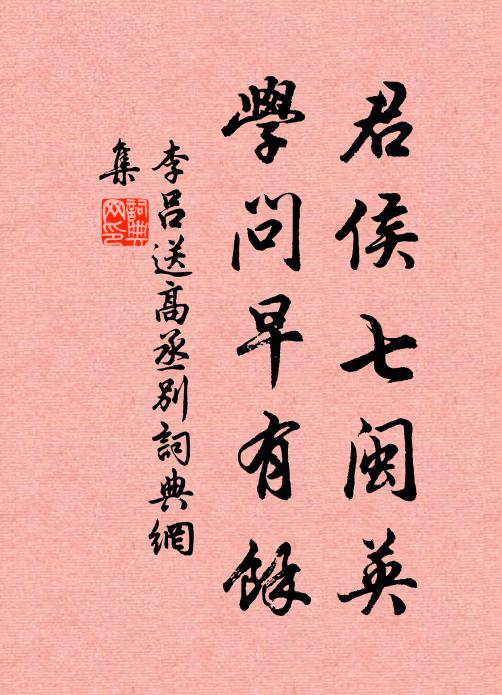 君侯七闽英
學問早有餘
李呂送高丞別詞典網
集
詞典网印